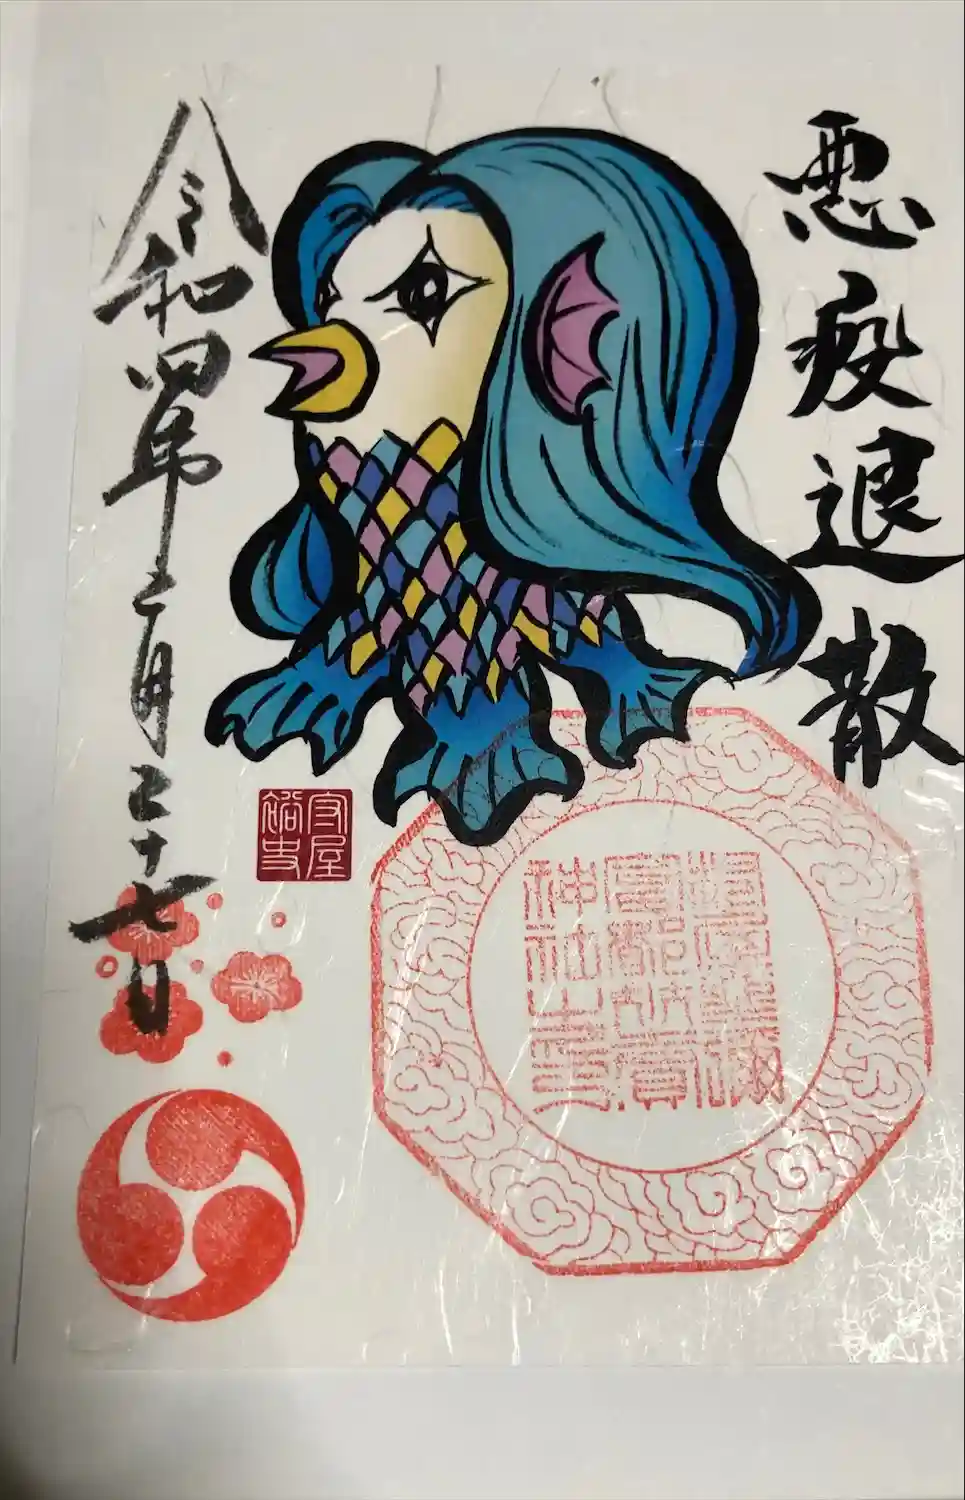 悪疫退散
令和四年二月二十七日
守屋
裕史